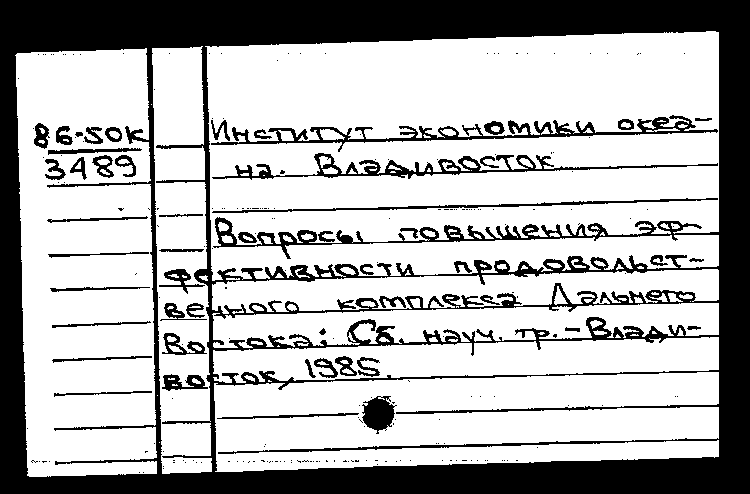 86-50К
3489
Институт экономики океа-
на. Владивосток
Вопросы повышения эф-
фективности продовольст-
венного комплекса Дальнего
Востока: Сб. науч. тр.-Влади-
восток, 1985.